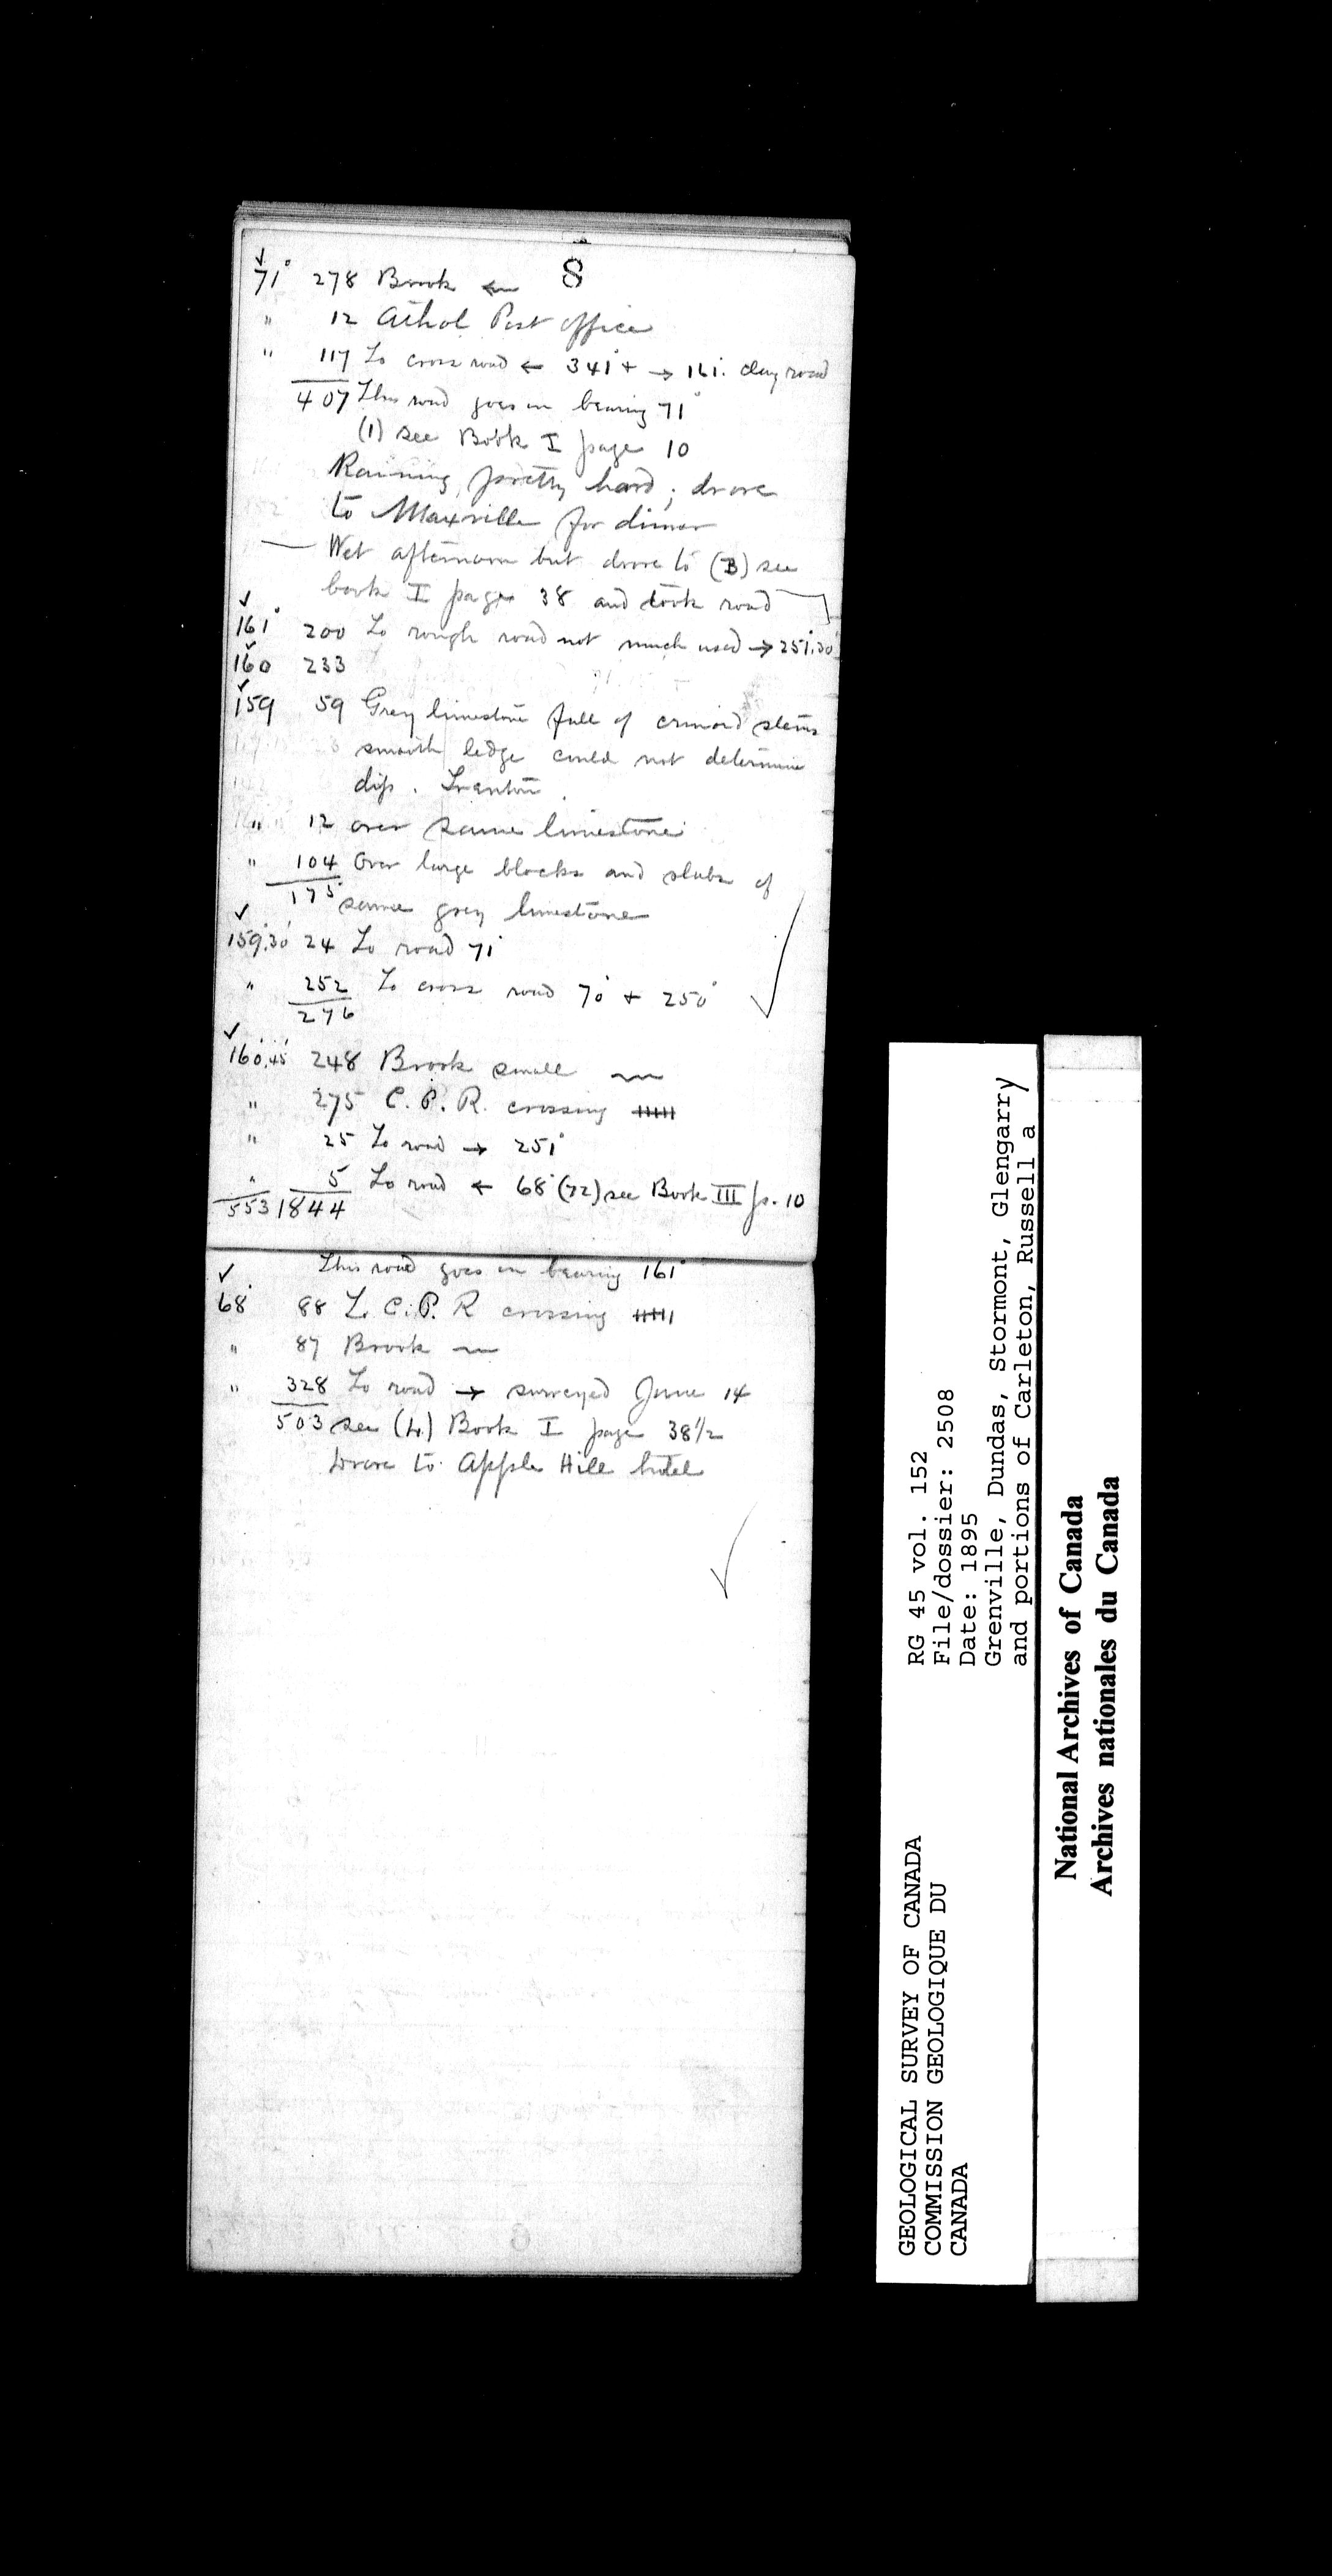 8
71° 278 Brook ←
" 12 Athol Post office
" 117 To cross road ← 341° + → 161. clay road
407 This road goes on bearing 71°
(1) see Book I page 10
Raining pretty hard; drove
to Maxville for dinner
— Wet afternoon but drove to (B) see
book I page 38 and took road
161° 200 To rough road not much used → 251°.30'
160 233
159 59 Grey limestone full of crinoid stems
smooth ledge could not determine
dip. Trenton
" 12 over same limestone
" 104 Over large blocks and slabs of
175 same grey limestone
159°.30' 24 To road 71°
" 252 To cross road 70° + 250°
276
160°.45' 248 Brook small
" 275 C. P. R. crossing
" 25 To road → 251°
" 5 To road ← 68° (72) see Book III p. 10
553 1844
This road goes on bearing 161°
68° 88 To C. P. R crossing
" 87 Brook
" 328 To road → surveyed June 14
503 see (4) Book I page 38 1/2
Drove to Apple Hill hotel
GEOLOGICAL SURVEY OF CANADA
COMMISSION GEOLOGIQUE DU
CANADA
RG 45 vol. 152
File/dossier: 2508
Date: 1895
Grenville, Dundas, Stormont, Glengarry
and portions of Carleton, Russell a
National Archives of Canada
Archives nationales du Canada